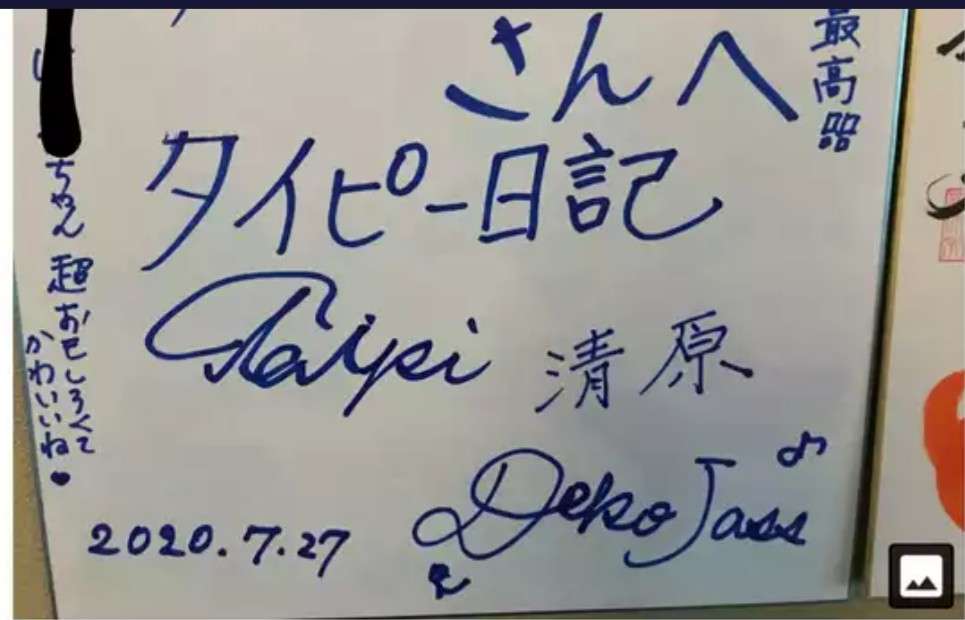 さんへ
最高器
タイピー日記
Taipi
清原
ちゃん 超おもしろくて
かわいいね♥
Deko Jass♪
2020.7.27